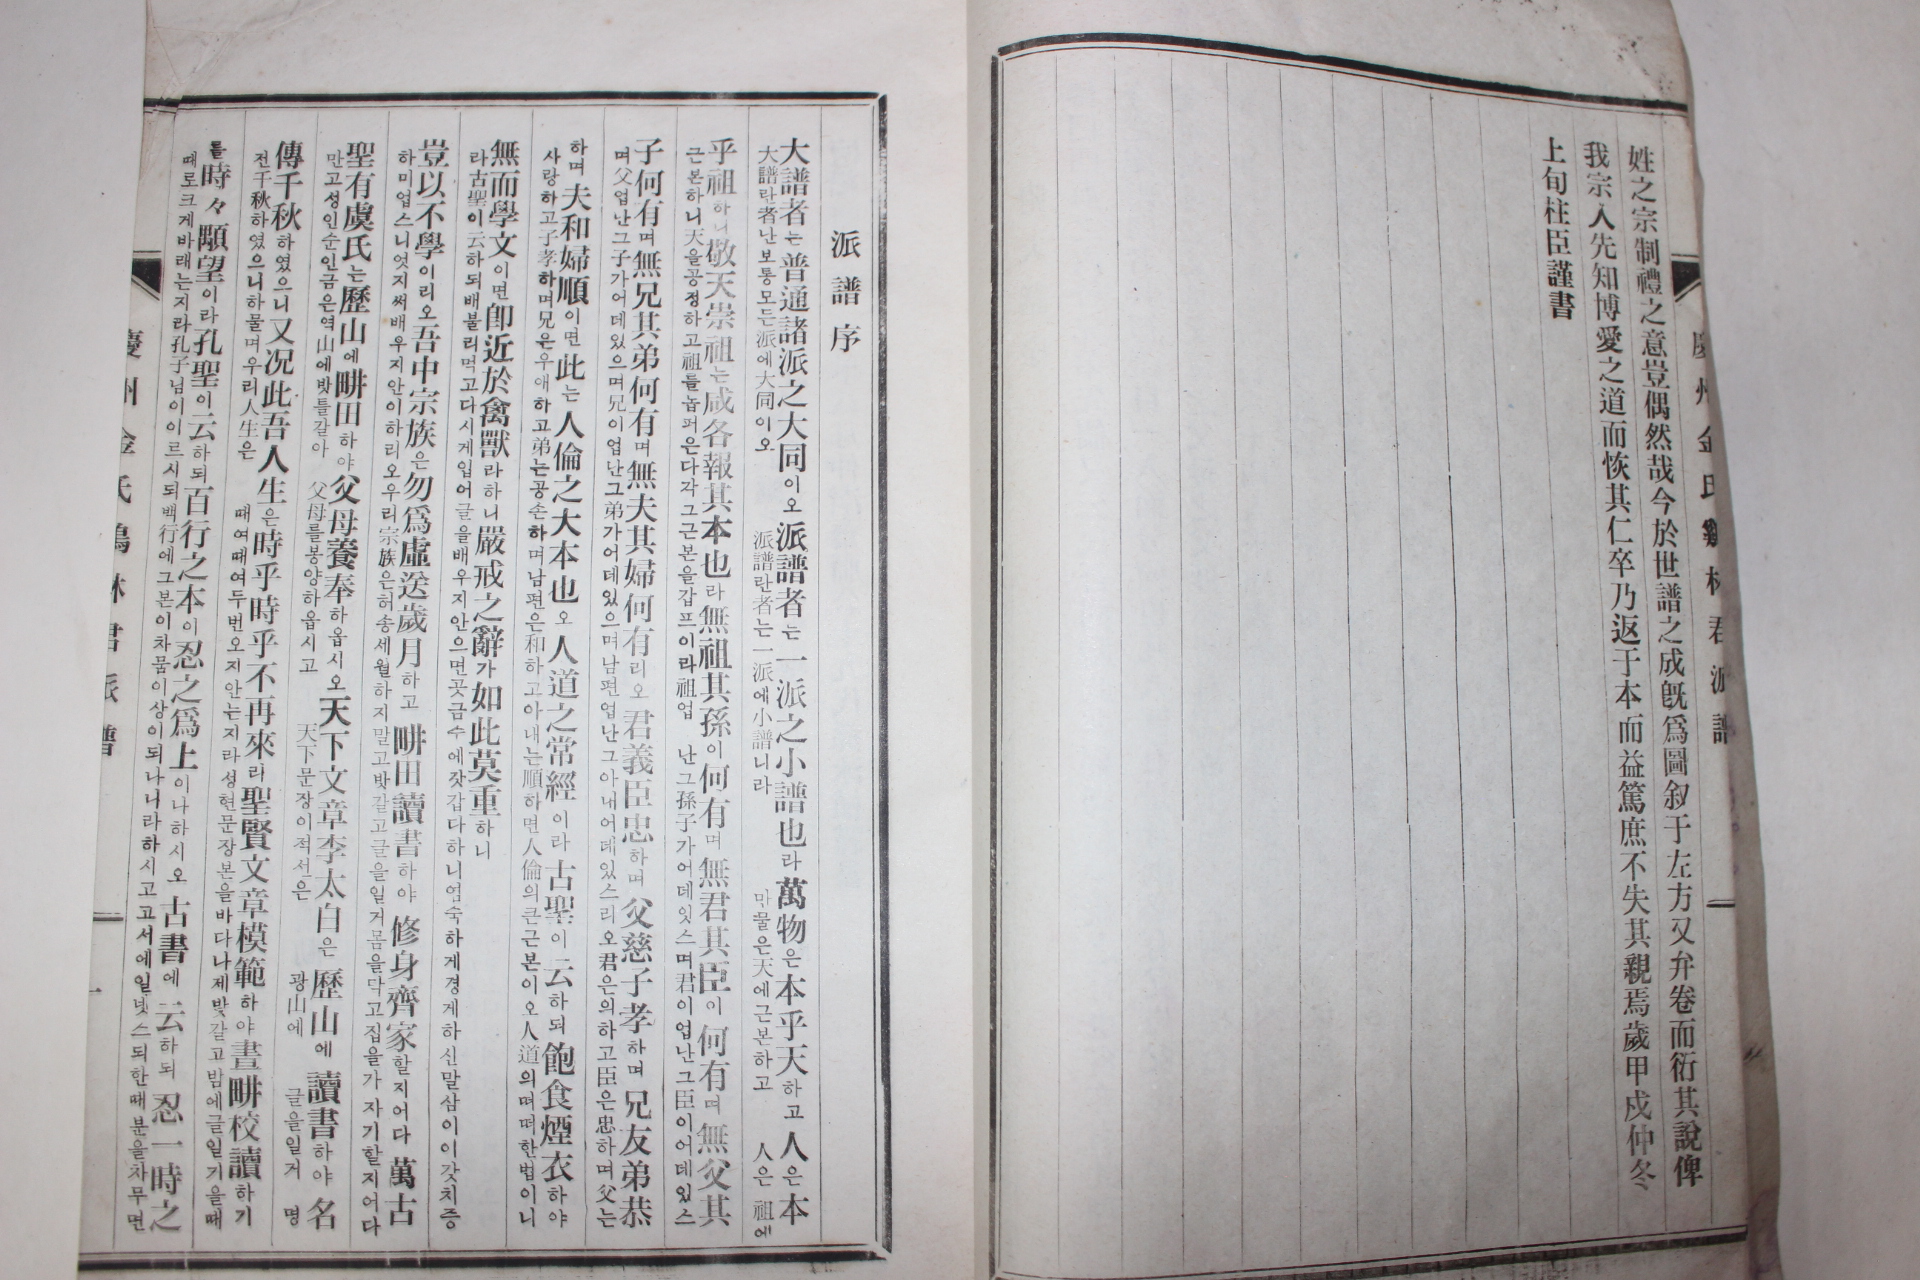 姓之宗制禮之意豈偶然哉今於世譜之成旣爲圖叙于左方又弁卷而衍其說俾
我宗人先知博愛之道而恢其仁卒乃返于本而益篤庶不失其親焉歲甲戍仲冬
上旬柱臣謹書
慶州金氏鷄林君派譜
派譜序
大譜者는普通諸派之大同이오派譜者는一派之小譜也라萬物은本乎天하고人은本
大譜란者난보통모든派에大同이오 派譜란者는一派에小譜니라 만물은天에근본하고 人은 祖에
乎祖하니敬天崇祖는咸各報其本也라無祖其孫이何有며無君其臣이何有며無父其
근본하니天을공경하고祖를놉퍼은다각그근본을갑프이라祖업 난그孫子가어데잇스며君이업난그臣이어데있스
子何有며無兄其弟何有며無夫其婦何有리오君義臣忠하며父慈子孝하며兄友弟恭
며父업난그子가어데있으며兄이업난그弟가어데있으며남편업난그아내어데있스리오君은의하고臣은忠하며父는
하며夫和婦順이면此는人倫之大本也오人道之常經이라古聖이云하되飽食煙衣하야
사랑하고子孝하며兄은우애하고弟는공손하며남편은和하고아내는順하면人倫의큰근본이오人道의떠떠한법이니
無而學文이면卽近於禽獸라하니嚴戒之辭가如此莫重하니
라古聖이云하되배불리먹고다시게입어글을배우지안으면곳금수에잣갑다하니엄숙하게경게하신말삼이이갓치중
豈以不學이리오吾中宗族은勿爲虛送歲月하고畊田讀書하야修身齊家할지어다萬古
하미업스니엇지써배우지안이하리오우리宗族은허송세월하지말고밧갈고글을일거몸을닥고집을가자기할지어다
聖有虞氏는歷山에畊田하야父母養奉하옵시오天下文章李太白은歷山에讀書하야名
만고성인순인금은역山에밧틀갈아 父母를봉양하옵시고 天下문장이적선은 광山에 글을일거 명
傳千秋하였으니又况此吾人生은時乎時乎不再來리聖賢文章模範하야晝畊校讀하기
전千秋하였으니하물며우리人生은 때여때여두번오지안는지라성현문장본을바다나제밧갈고밤에글일기을때
를時々顒望이라孔聖이云하되百行之本이忍之爲上이나하시오古書에云하되忍一時之
때로크게바래는지라孔子님이이르시되백行에그본이차뭄이상이되나니라하시고고서에일넛스되한때분을차무면
慶州金氏鷄林君派譜
一